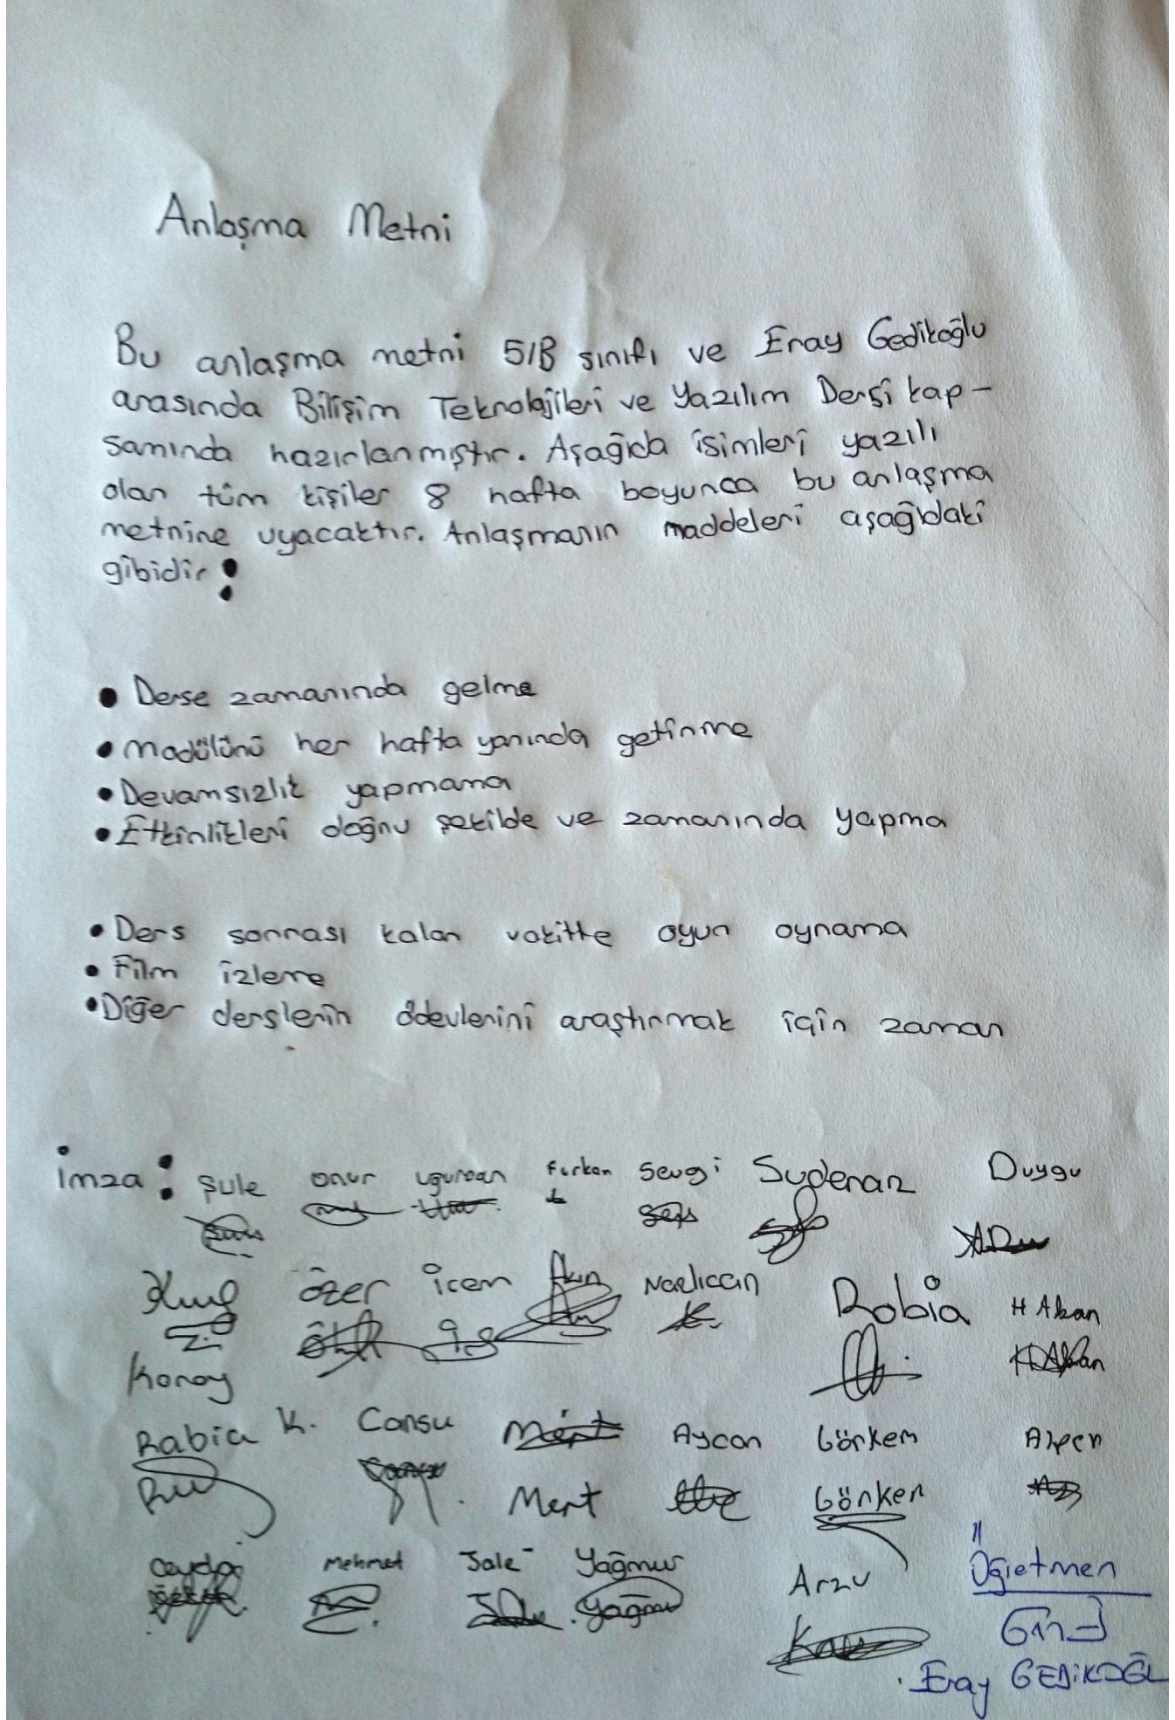 Anlaşma Metni
Bu anlaşma metni 5/B sınıfı ve Eray Gedikoğlu
arasında Bilişim Teknolojileri ve Yazılım Dersi kap-
samında hazırlanmıştır. Aşağıda isimleri yazılı
olan tüm kişiler 8 hafta boyunca bu anlaşma
metnine uyacaktır. Anlaşmanın maddeleri aşağıdaki
gibidir:
• Derse zamanında gelme
• Modülünü her hafta yanında getirme
• Devamsızlık yapmama
• Etkinlikleri doğru şekilde ve zamanında yapma
• Ders sonrası kalan vakitte oyun oynama
• Film izleme
• Diğer derslerin ödevlerini araştırmak için zaman
İmza: Şule Onur Ugurcan Furkan Sevgi Sudenaz Duygu
Özer İrem Akın Narlıcan Rabia H Akan
H Akan
Koray
Rabia K. Cansu Mert Aycan Görkem Alper
Mert Görkem
Ceyda Mehmet Jale Yağmur Arzu Öğretmen
Yağmur
Eray GEDİKOĞL